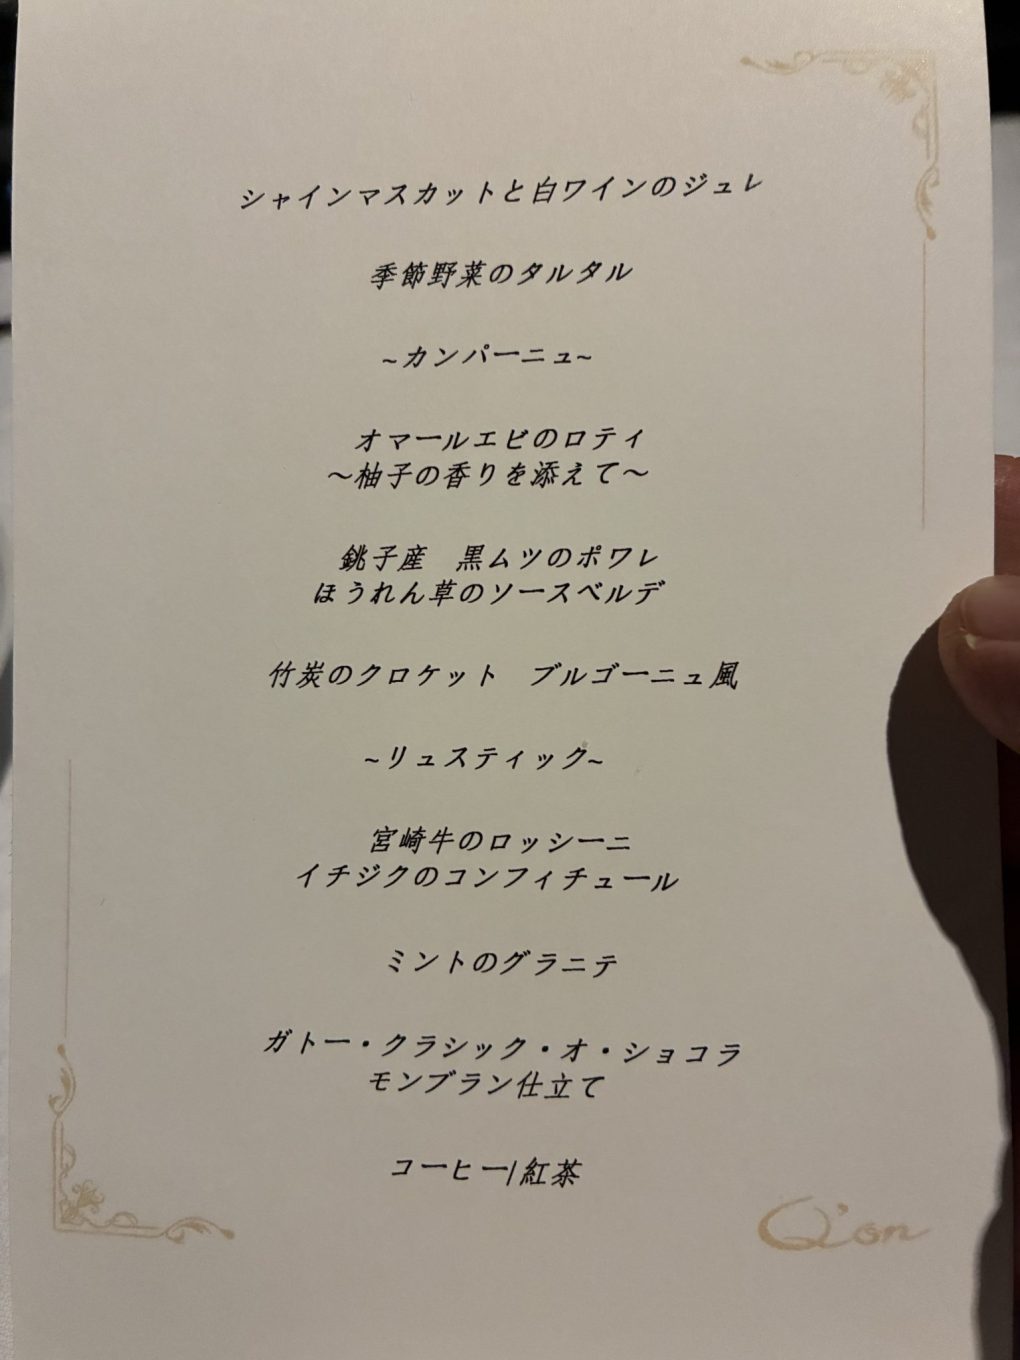 シャインマスカットと白ワインのジュレ
季節野菜のタルタル
~カンパーニュ~
オマールエビのロティ
～柚子の香りを添えて～
銚子産　黒ムツのポワレ
ほうれん草のソースベルデ
竹炭のクロケット　ブルゴーニュ風
~リュスティック~
宮崎牛のロッシーニ
イチジクのコンフィチュール
ミントのグラニテ
ガトー・クラシック・オ・ショコラ
モンブラン仕立て
コーヒー/紅茶
Q'on